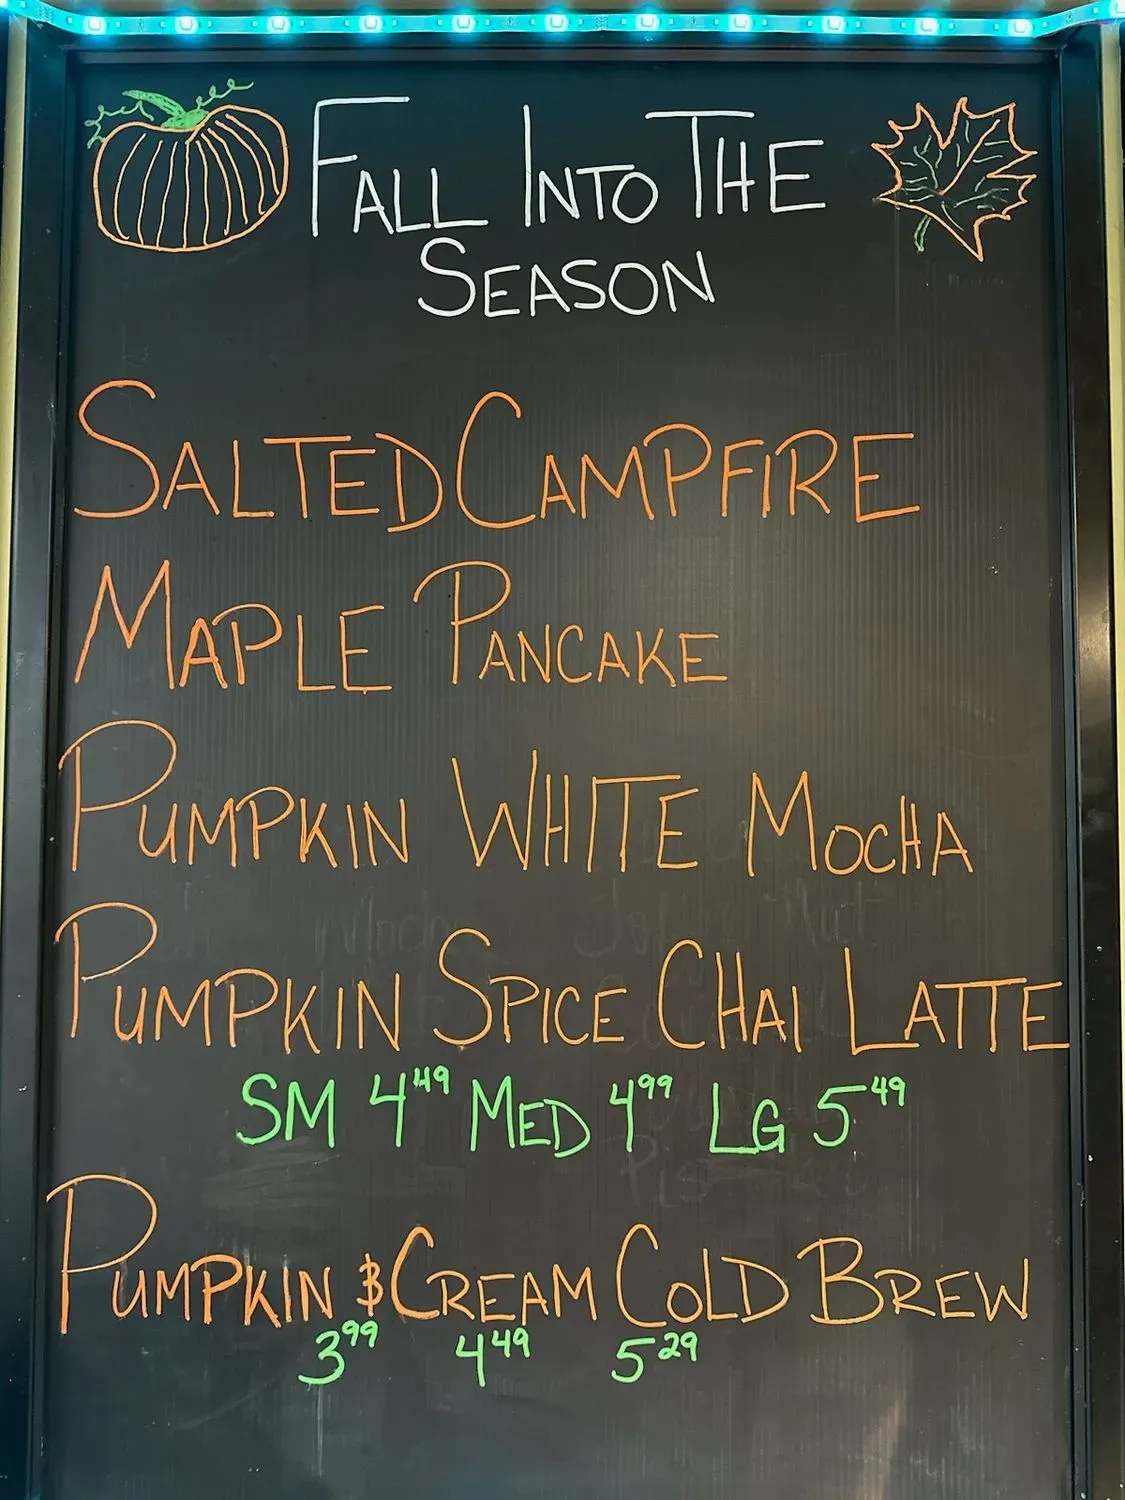 FALL INTO THE
SEASON
SALTED CAMPFIRE
MAPLE PANCAKE
PUMPKIN WHITE MOCHA
PUMPKIN SPICE CHAI LATTE
SM 4.49 MED 4.99 LG 5.49
PUMPKIN & CREAM COLD BREW
3.99 4.49 5.29